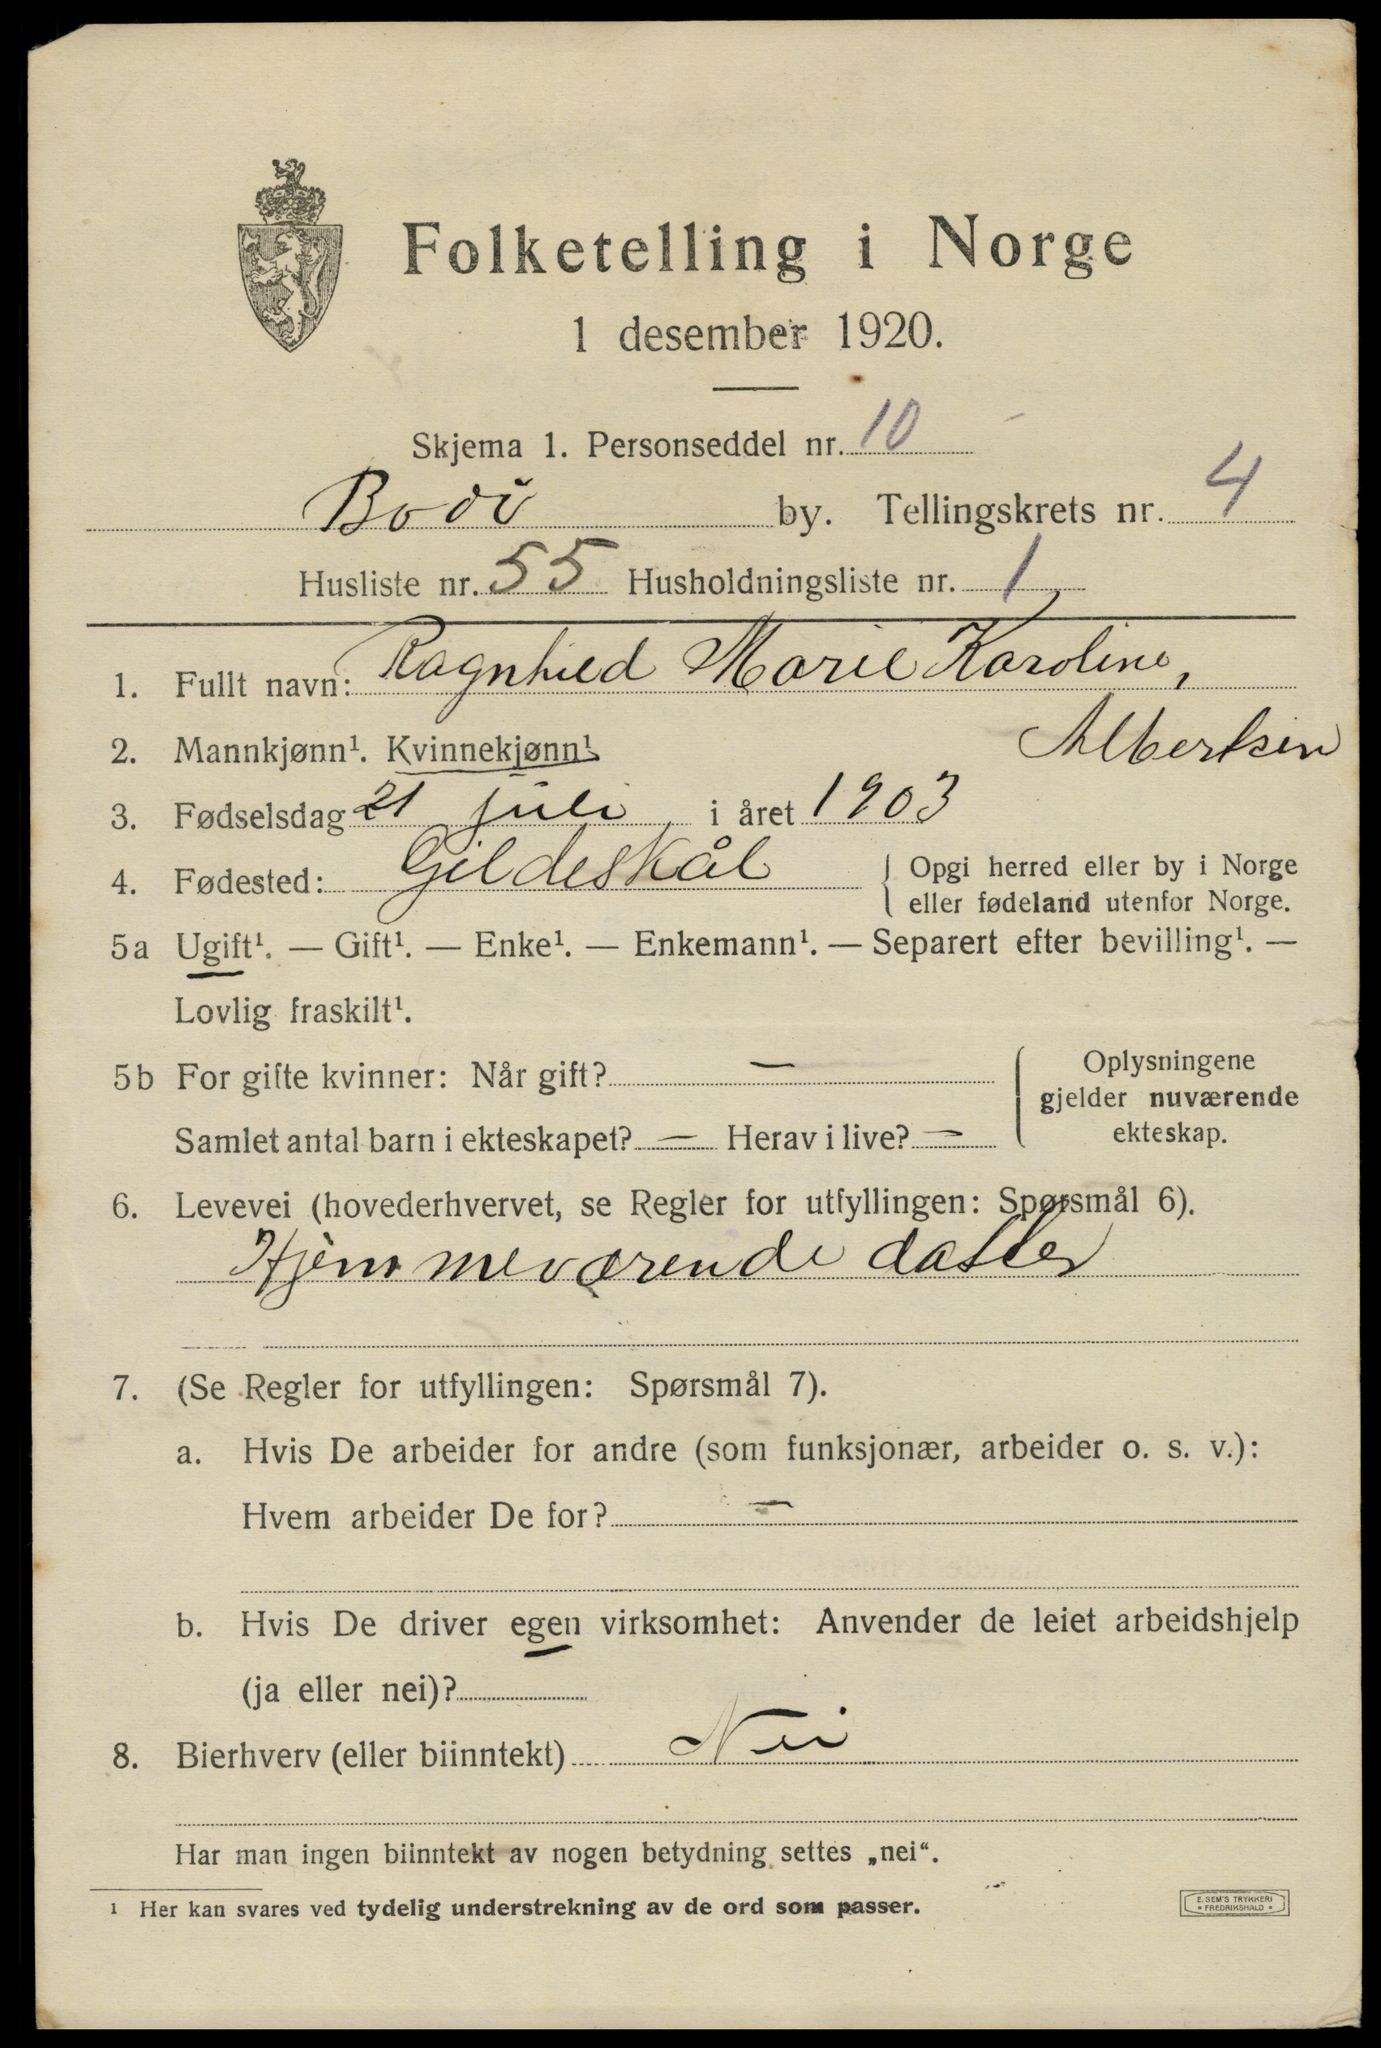 Folketelling i Norge
1 desember 1920.
Skjema 1. Personseddel nr. 10
Bodö by. Tellingskrets nr. 4
Husliste nr. 55 Husholdningsliste nr. 1
1. Fullt navn: Ragnhild Marie Karoline,
Albertsen
2. Mannkjønn¹. Kvinnekjønn¹
3. Fødselsdag 21 juli i året 1903
4. Fødested: Gildeskål { Opgi herred eller by i Norge
eller fødeland utenfor Norge.
5a Ugift¹. — Gift¹. — Enke¹. — Enkemann¹. — Separert efter bevilling¹. —
Lovlig fraskilt¹.
5b For gifte kvinner: Når gift? —
Samlet antal barn i ekteskapet? — Herav i live? —
Oplysningene
gjelder nuværende
ekteskap.
6. Levevei (hovederhvervet, se Regler for utfyllingen: Spørsmål 6).
Hjemmeværende datter
7. (Se Regler for utfyllingen: Spørsmål 7).
a. Hvis De arbeider for andre (som funksjonær, arbeider o. s. v.):
Hvem arbeider De for? —
b. Hvis De driver egen virksomhet: Anvender de leiet arbeidshjelp
(ja eller nei)?
8. Bierhverv (eller biinntekt) Nei
Har man ingen biinntekt av nogen betydning settes „nei“.
¹ Her kan svares ved tydelig understrekning av de ord som passer.
E. SEM'S TRYKKERI
* FREDRIKSHALD *